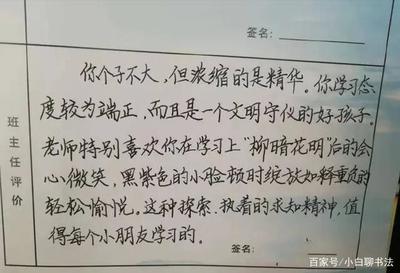 签名：
班主任评价
你个子不大，但浓缩的是精华。你学习态
度较为端正，而且是一个文明守仪的好孩子。
老师特别喜欢你在学习上“柳暗花明”后的会
心微笑，黑紫色的小脸顿时绽放如释重负的
轻松愉悦。这种探索、执着的求知精神，值
得每个小朋友学习的。
签名：
百家号/小白聊书法